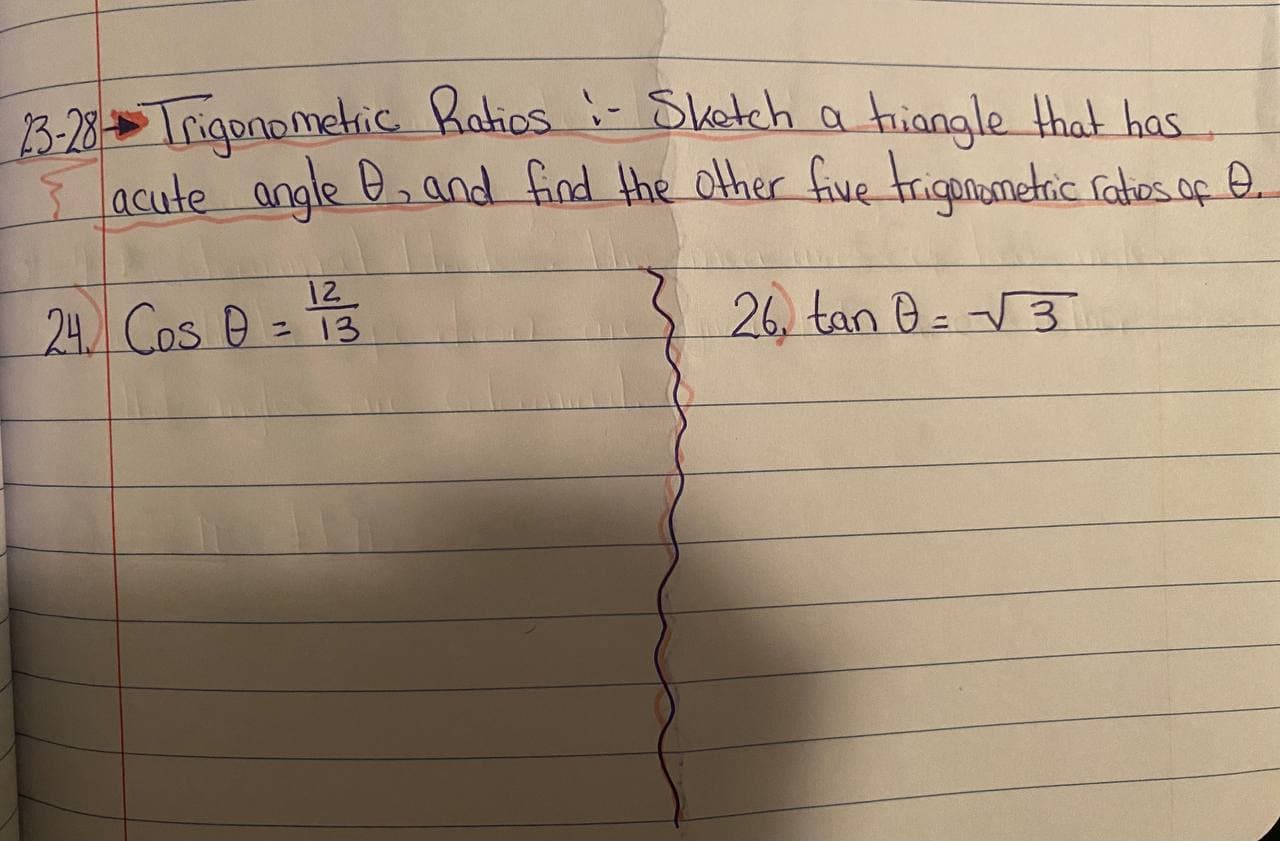 23-28 → Trigonometric Ratios :- Sketch a triangle that has
acute angle θ, and find the other five trigonometric ratios of θ.
24.) Cos θ = 12/13
26.) tan θ = √3